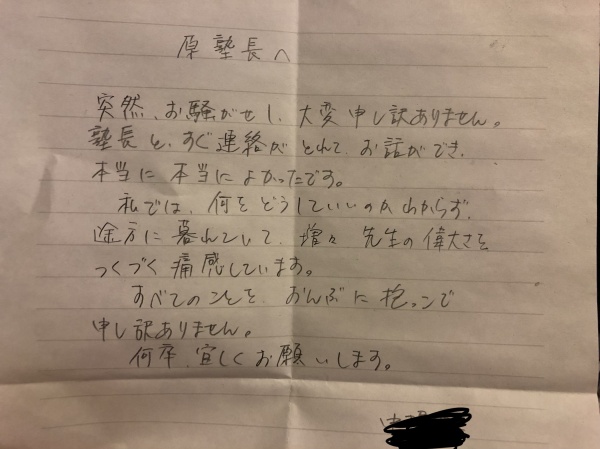 原塾長へ
突然、お騒がせし、大変申し訳ありません。
塾長と、すぐ連絡がとれて、お話ができ、
本当に本当によかったです。
私では、何をどうしていいのかわからず、
途方に暮れていて、増々先生の偉大さを
つくづく痛感しています。
すべてのことを、おんぶに抱っこで
申し訳ありません。
何卒、宜しくお願いします。